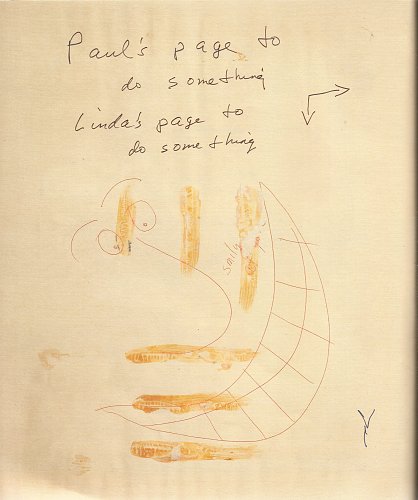 Paul's page to
do something
Linda's page to
do something
smily